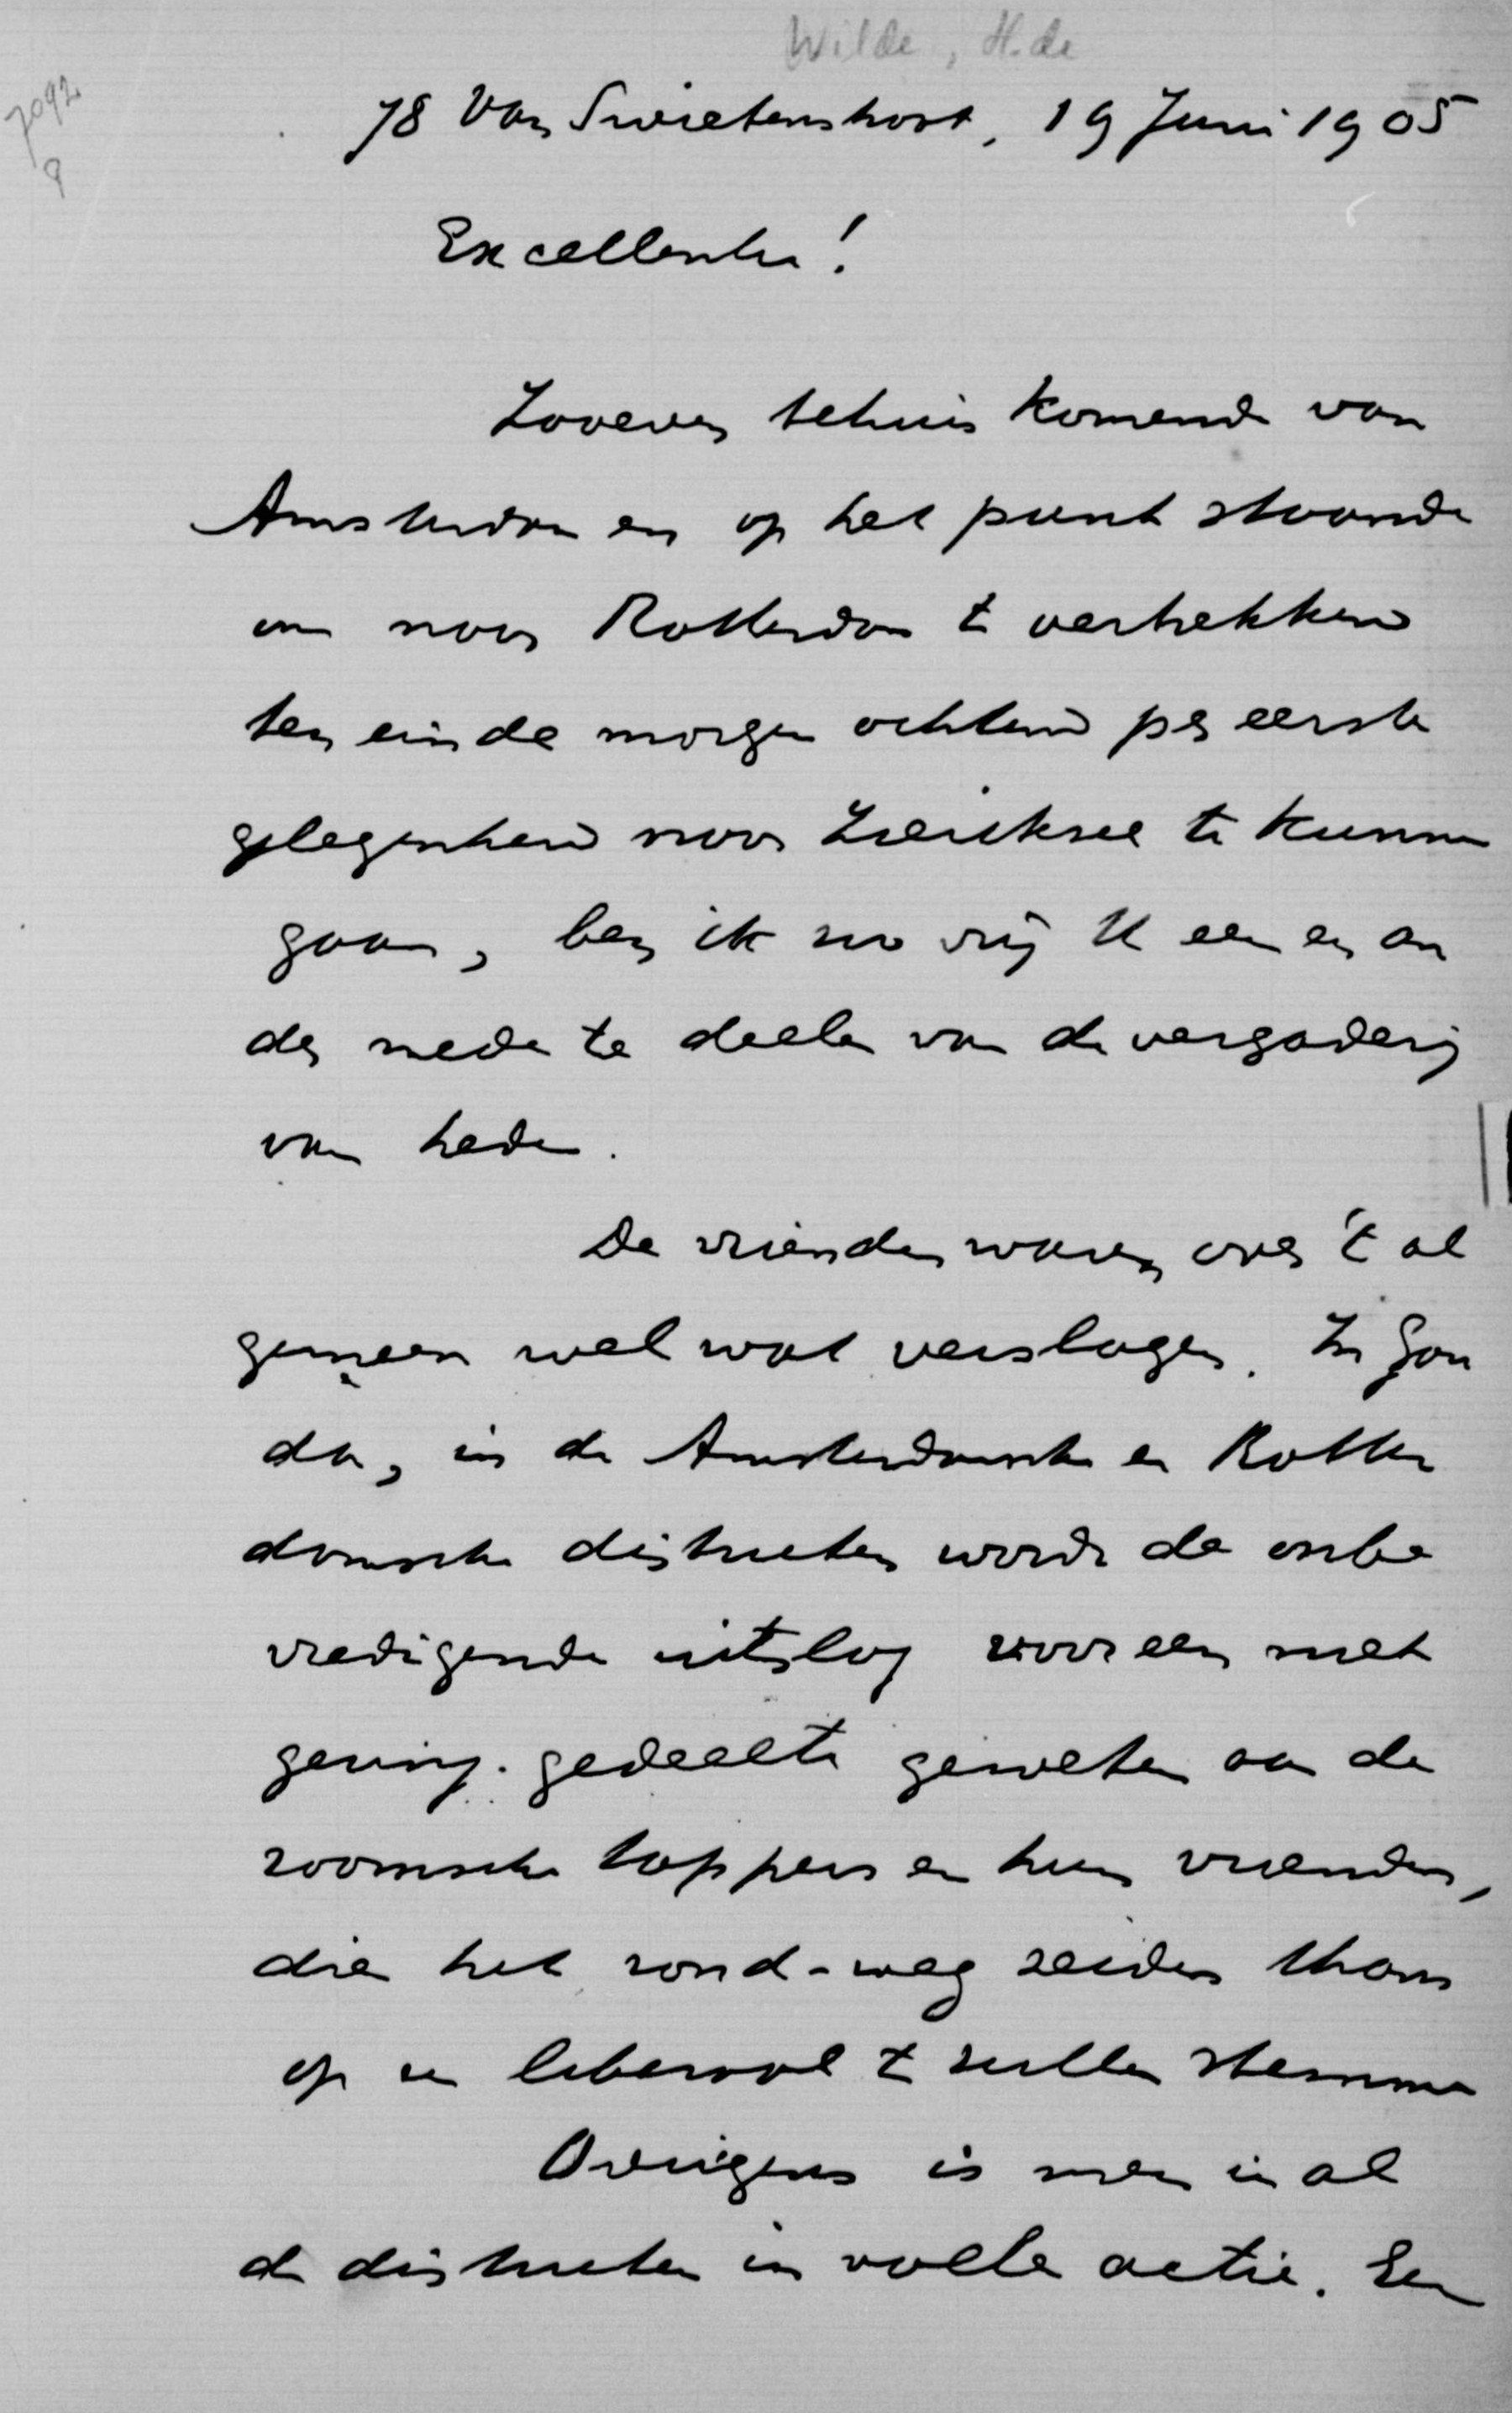 Wilde, H. de
7092
78 Van Swietenstraat, 19 Juni 1905
Excellentie!
Zooeven tehuis komend van
Amsterdam en op het punt staande
om naar Rotterdam te vertrekken
ten einde morgen ochtend per eerste
gelegenheid naar Zierikzee te kunnen
gaan, ben ik zoo vrij U een en an
der mede te deelen van de vergadering
van heden.
De vrienden waren over 't al
gemeen wel wat verslagen. In Gou
da, in de Amsterdamsche en Rotter
damsche districten wordt de onbe
vredigende uitslag voor een niet
gering gedeelte geweten aan de
roomsche tappers en hun vrienden,
die het rond-weg zeiden thans
op een liberaal te zullen stemmen
Overigens is men in al
de districten in volle actie. Een